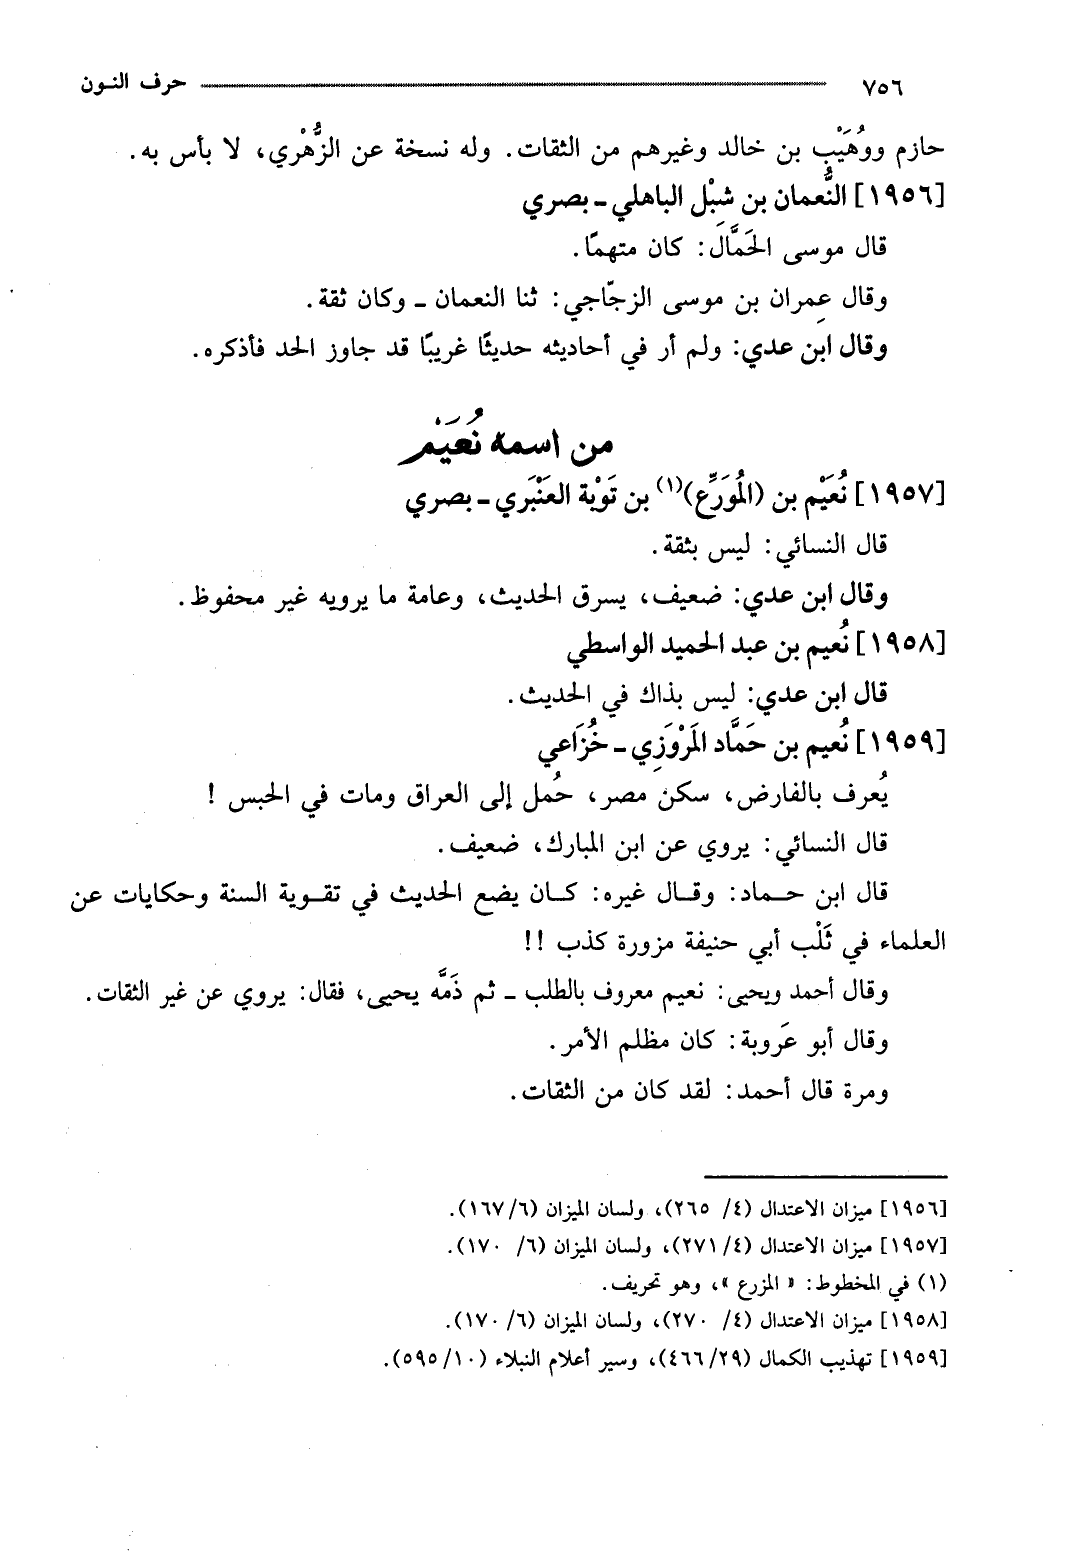 ٧٥٦ حرف النـون
حازم ووُهَيْب بن خالد وغيرهم من الثقات. وله نسخة عن الزُّهْري، لا بأس به.
[١٩٥٦] النُّعمان بن شِبْل الباهلي ـ بصري
قال موسى الحَمَّال: كان متهمًا.
وقال عمران بن موسى الزجّاجي: ثنا النعمان ـ وكان ثقة.
وقال ابن عدي: ولم أر في أحاديثه حديثًا غريبًا قد جاوز الحد فأذكره.
من اسمه نُعَيْم
[١٩٥٧] نُعَيْم بن (المُوَرِّع)(١) بن تَوْبة العَنْبَري ـ بصري
قال النسائي: ليس بثقة.
وقال ابن عدي: ضعيف، يسرق الحديث، وعامة ما يرويه غير محفوظ.
[١٩٥٨] نُعيم بن عبد الحميد الواسطي
قال ابن عدي: ليس بذاك في الحديث.
[١٩٥٩] نُعيم بن حَمَّاد المَرْوَزِي ـ خُزَاعي
يُعرف بالفارض، سكن مصر، حُمل إلى العراق ومات في الحبس !
قال النسائي: يروي عن ابن المبارك، ضعيف.
قال ابن حـماد: وقـال غيره: كـان يضع الحديث في تقـوية السنة وحكايات عن
العلماء في ثَلْب أبي حنيفة مزورة كذب !!
وقال أحمد ويحيى: نعيم معروف بالطلب ـ ثم ذَمَّه يحيى، فقال: يروي عن غير الثقات.
وقال أبو عَروبة: كان مظلم الأمر.
ومرة قال أحمد: لقد كان من الثقات.
[١٩٥٦] ميزان الاعتدال (٤/ ٢٦٥)، ولسان الميزان (٦/ ١٦٧).
[١٩٥٧] ميزان الاعتدال (٤/ ٢٧١)، ولسان الميزان (٦/ ١٧٠).
(١) في المخطوط: « المزرع »، وهو تحريف.
[١٩٥٨] ميزان الاعتدال (٤/ ٢٧٠)، ولسان الميزان (٦/ ١٧٠).
[١٩٥٩] تهذيب الكمال (٢٩/ ٤٦٦)، وسير أعلام النبلاء (١٠/ ٥٩٥).